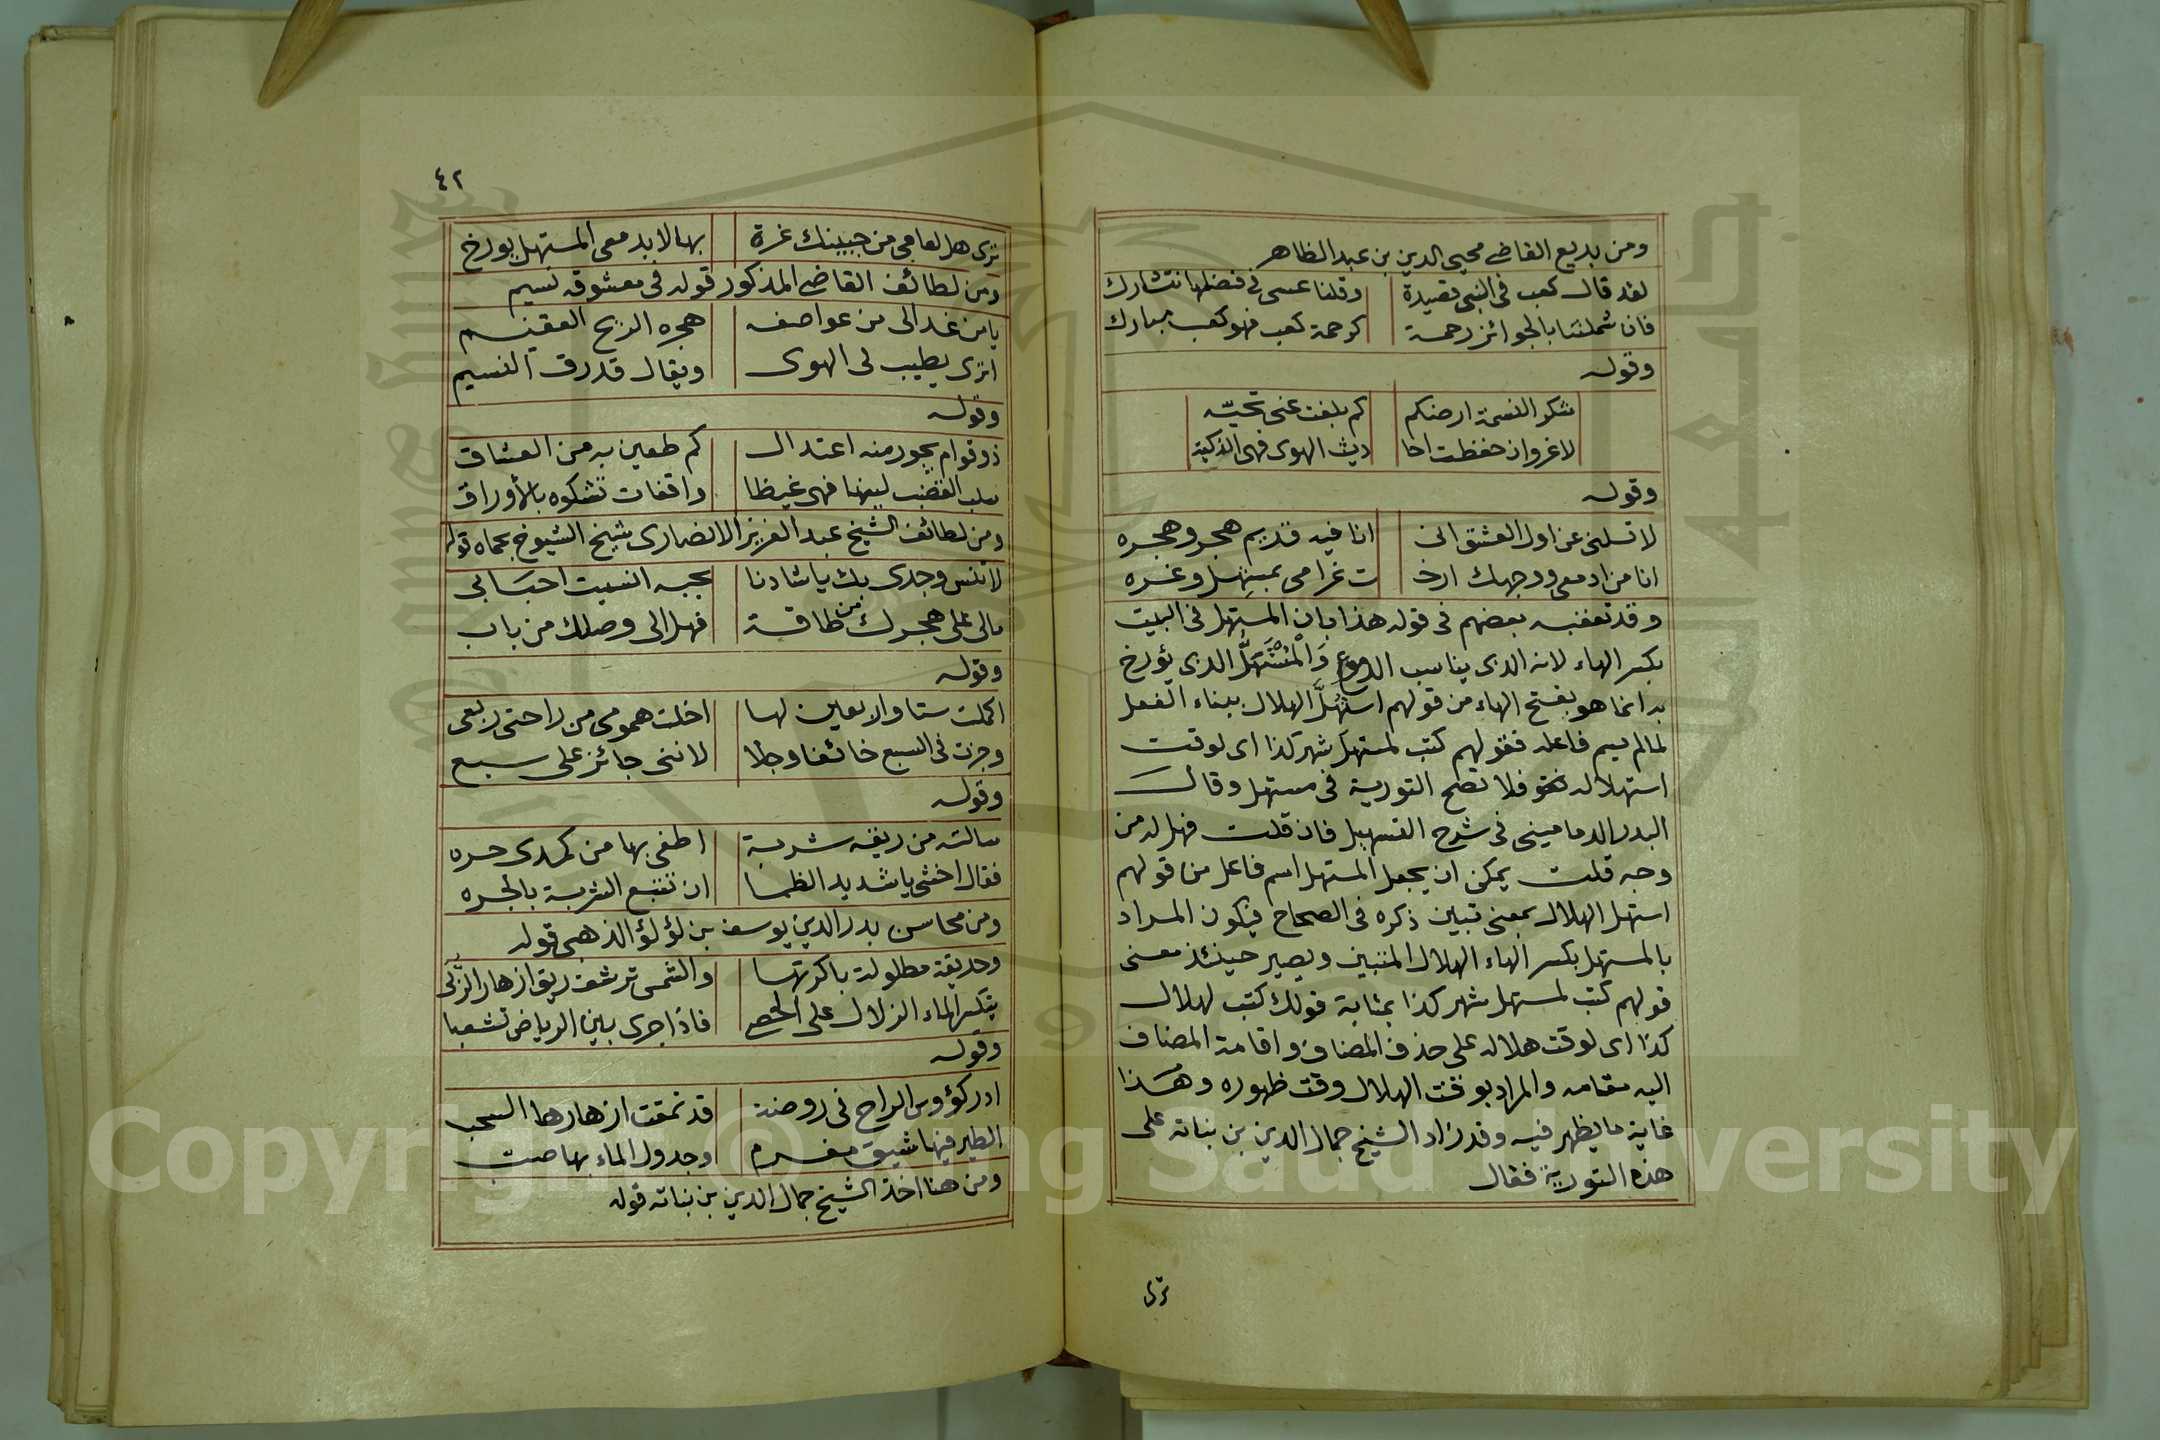 ومن بديع القاضى محيى الدين بن عبد الظاهر
لقد قال كعب فى النبى قصيدة وقلنا عسى فى فضلها نتشارك
فان شملتنا بالجوائز رحمة كرحمة كعب فهو كعب مبارك
وقوله
شكر النسمة ارضكم كم بلغت عنى تحيّه
لا غروان حفظت احا ديث الهوى فهى الذكية
وقوله
لا تسلنى عن اول العشق انى انا فيه قديم هجر وهجره
انا من ادمعى ووجهك ارخـ ت غرامى بمستهل وغره
وقد تعقبه بعضهم فى قوله هذا بان المستهل فى البيت
بكسر الهاء لانه الذى يناسب الدموع وَالْمُسْتَهَلُّ الذى يؤرخ
به انما هو بفتح الهاء من قولهم استُهُلَّ الهلال ببناء الفعل
لمالم يسم فاعله فقولهم كتب لمستهل شهر كذا اى لوقت
استهلاله فلا تصح التورية فى مستهل وقال
البدر الدمامينى فى شرح التسهيل فان قلت فهل له من
وجه قلت يمكن ان يجعل المستهل اسم فاعل من قولهم
استهل الهلال بمعنى تبين ذكره فى الصحاح فيكون المراد
بالمستهل بكسر الهاء الهلال المتبين ويصير حينئذ معنى
قولهم كتب لمستهل شهر كذا بمثابة قولك كتب لهلال
كذا اى لوقت هلاله على حذف المضاف واقامة المضاف
اليه مقامه والمراد بوقت الهلال وقت ظهوره وهذا
غاية ما يظهر فيه وقد زاد الشيخ جمال الدين بن نباته على
هذه التورية فقال
ترى
٤٢
ترى هل لعامى من جبينك غرة بها لا بدمعى المستهل يورخ
ومن لطائف القاضى المذكور قوله فى معشوقه نسيم
يا من غدا لى من عواصف هجره الريح العقيم
اترى يطيب لى الهوى ويقال قد رق النسيم
وقوله
ذو قوام يجور منه اعتدال كم طعين به من العشاق
سلب القضب لينها فهى غيظا واقفات تشكوه بالأوراق
ومن لطائف الشيخ عبد العزيز الانصارى شيخ الشيوخ بحماه قوله
لا تنس وجدى بك يا شادنا بحبه انسيت احبَابى
مالى على هجرك من طاقة فهل الى وصلك من باب
وقوله
اكملت ستا والاربعين لها اخلت همومى من راحتى ربعى
وجزت فى السبع خائفا وجلا لاننى جائز على سبع
وقوله
سالته من ريقه شربة اطفى بها من كمدى حره
فقال اخشى يا شديد الظما ان تتبع الشربة بالجره
ومن محاسن بدر الدين يوسف بن لؤلؤ الذهبى قوله
وحديقة مطلولة باكرتها والشمس ترشف ريق ازهار الرُّبَى
يتكسر الماء الزلال على الحصى فاذا جرى بين الرياض تشعبا
وقوله
ادر كؤوس الراح فى روضة قد نمقت ازهارها السحب
الطير فيها شيق مغرم وجدول الماء بها صب
ومن هنا اخذ الشيخ جمال الدين بن نباته قوله
Copyright © King Saud University